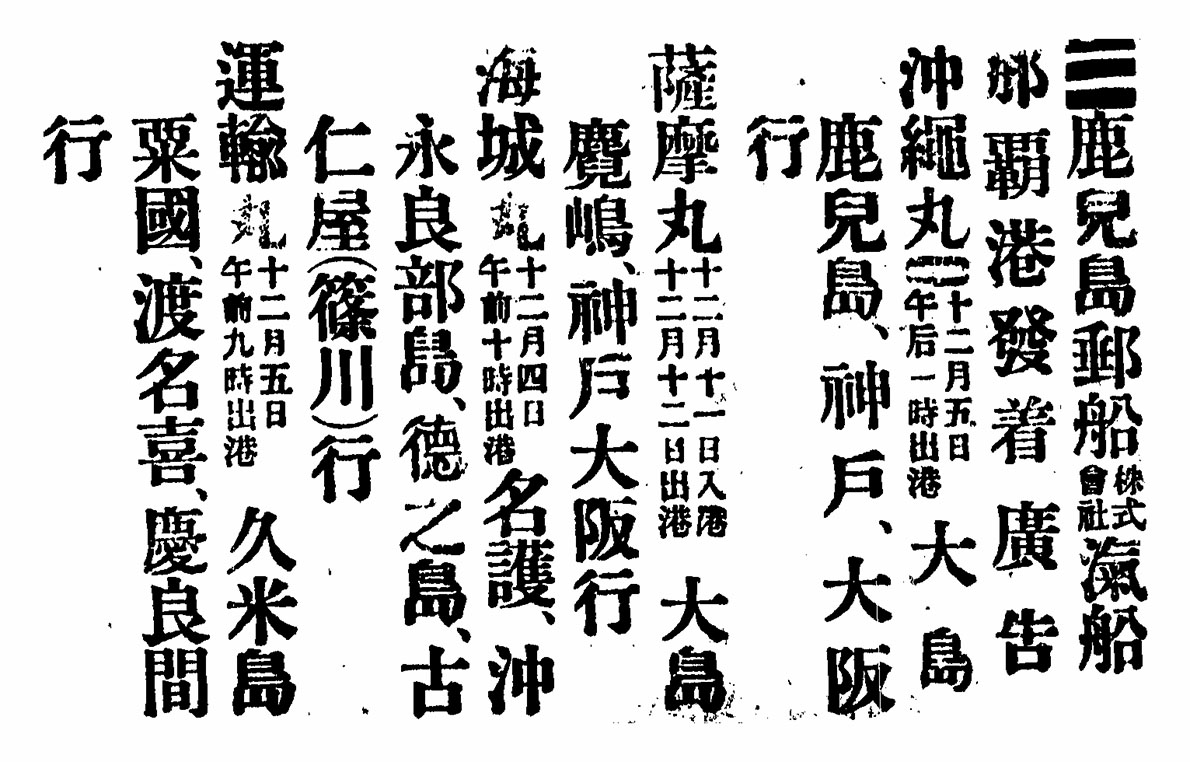 ☰鹿兒島郵船株式會社滊船
那覇港發着廣告
沖繩丸十二月五日午后一時出港 大島
鹿兒島、神戶、大阪
行
薩摩丸十二月十一日入港十二月十二日出港 大島
麑嶋、神戶大阪行
海城丸十二月四日午前十時出港名護、沖
永良部島、德之島、古
仁屋(篠川)行
運輸丸十二月五日午前九時出港 久米島
粟國、渡名喜、慶良間
行